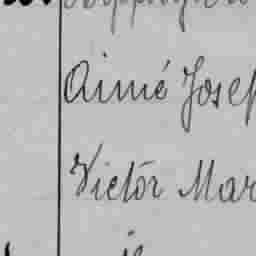 Aimé Josep
Victor Mar